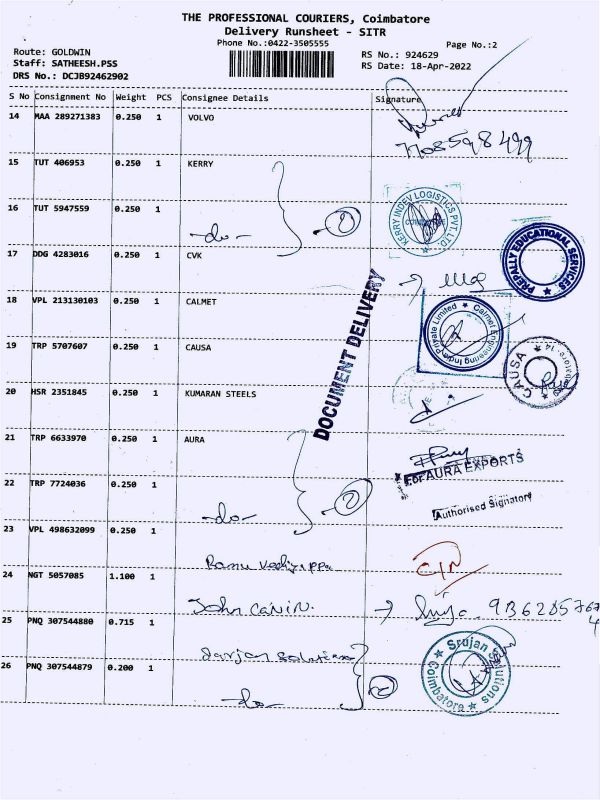 THE PROFESSIONAL COURIERS, Coimbatore
Delivery Runsheet - SITR
Phone No.:0422-3505555
Page No.:2
Route: GOLDWIN
Staff: SATHEESH.PSS
DRS No.: DCJB92462902
RS No.: 924629
RS Date: 18-Apr-2022
S No Consignment No Weight PCS Consignee Details Signature
14 MAA 289271383 0.250 1 VOLVO
15 TUT 406953 0.250 1 KERRY
16 TUT 5947559 0.250 1
-do- 2
KERRY INDEV LOGISTICS PVT. LTD.
17 DDG 4283016 0.250 1 CVK
PREPALLY EDUCATIONAL SERVICES
18 VPL 213130103 0.250 1 CALMET
Calmet Engineering India Private Limited
DOCUMENT DELIVERY
19 TRP 5707607 0.250 1 CAUSA
CAUSA
20 HSR 2351845 0.250 1 KUMARAN STEELS
21 TRP 6633970 0.250 1 AURA
For AURA EXPORTS
22 TRP 7724036 0.250 1
-do- 2
Authorised Signatory
23 VPL 498632099 0.250 1
24 NGT 5057085 1.100 1
John
25 PNQ 307544880 0.715 1
26 PNQ 307544879 0.200 1
-do- 2
Srujan Solutions
Coimbatore